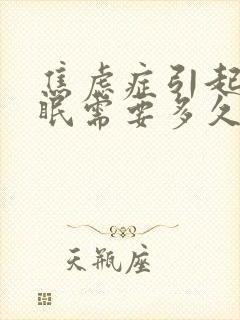 焦虑症引起
眠需要多久
天瓶座